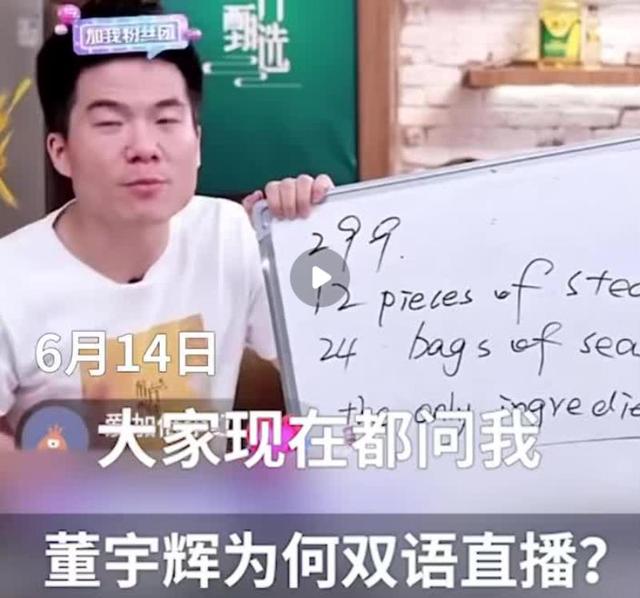 加我粉丝团
甄选
299.
12 pieces of
24 bags of
the only
6月14日
大家现在都问我
董宇辉为何双语直播？